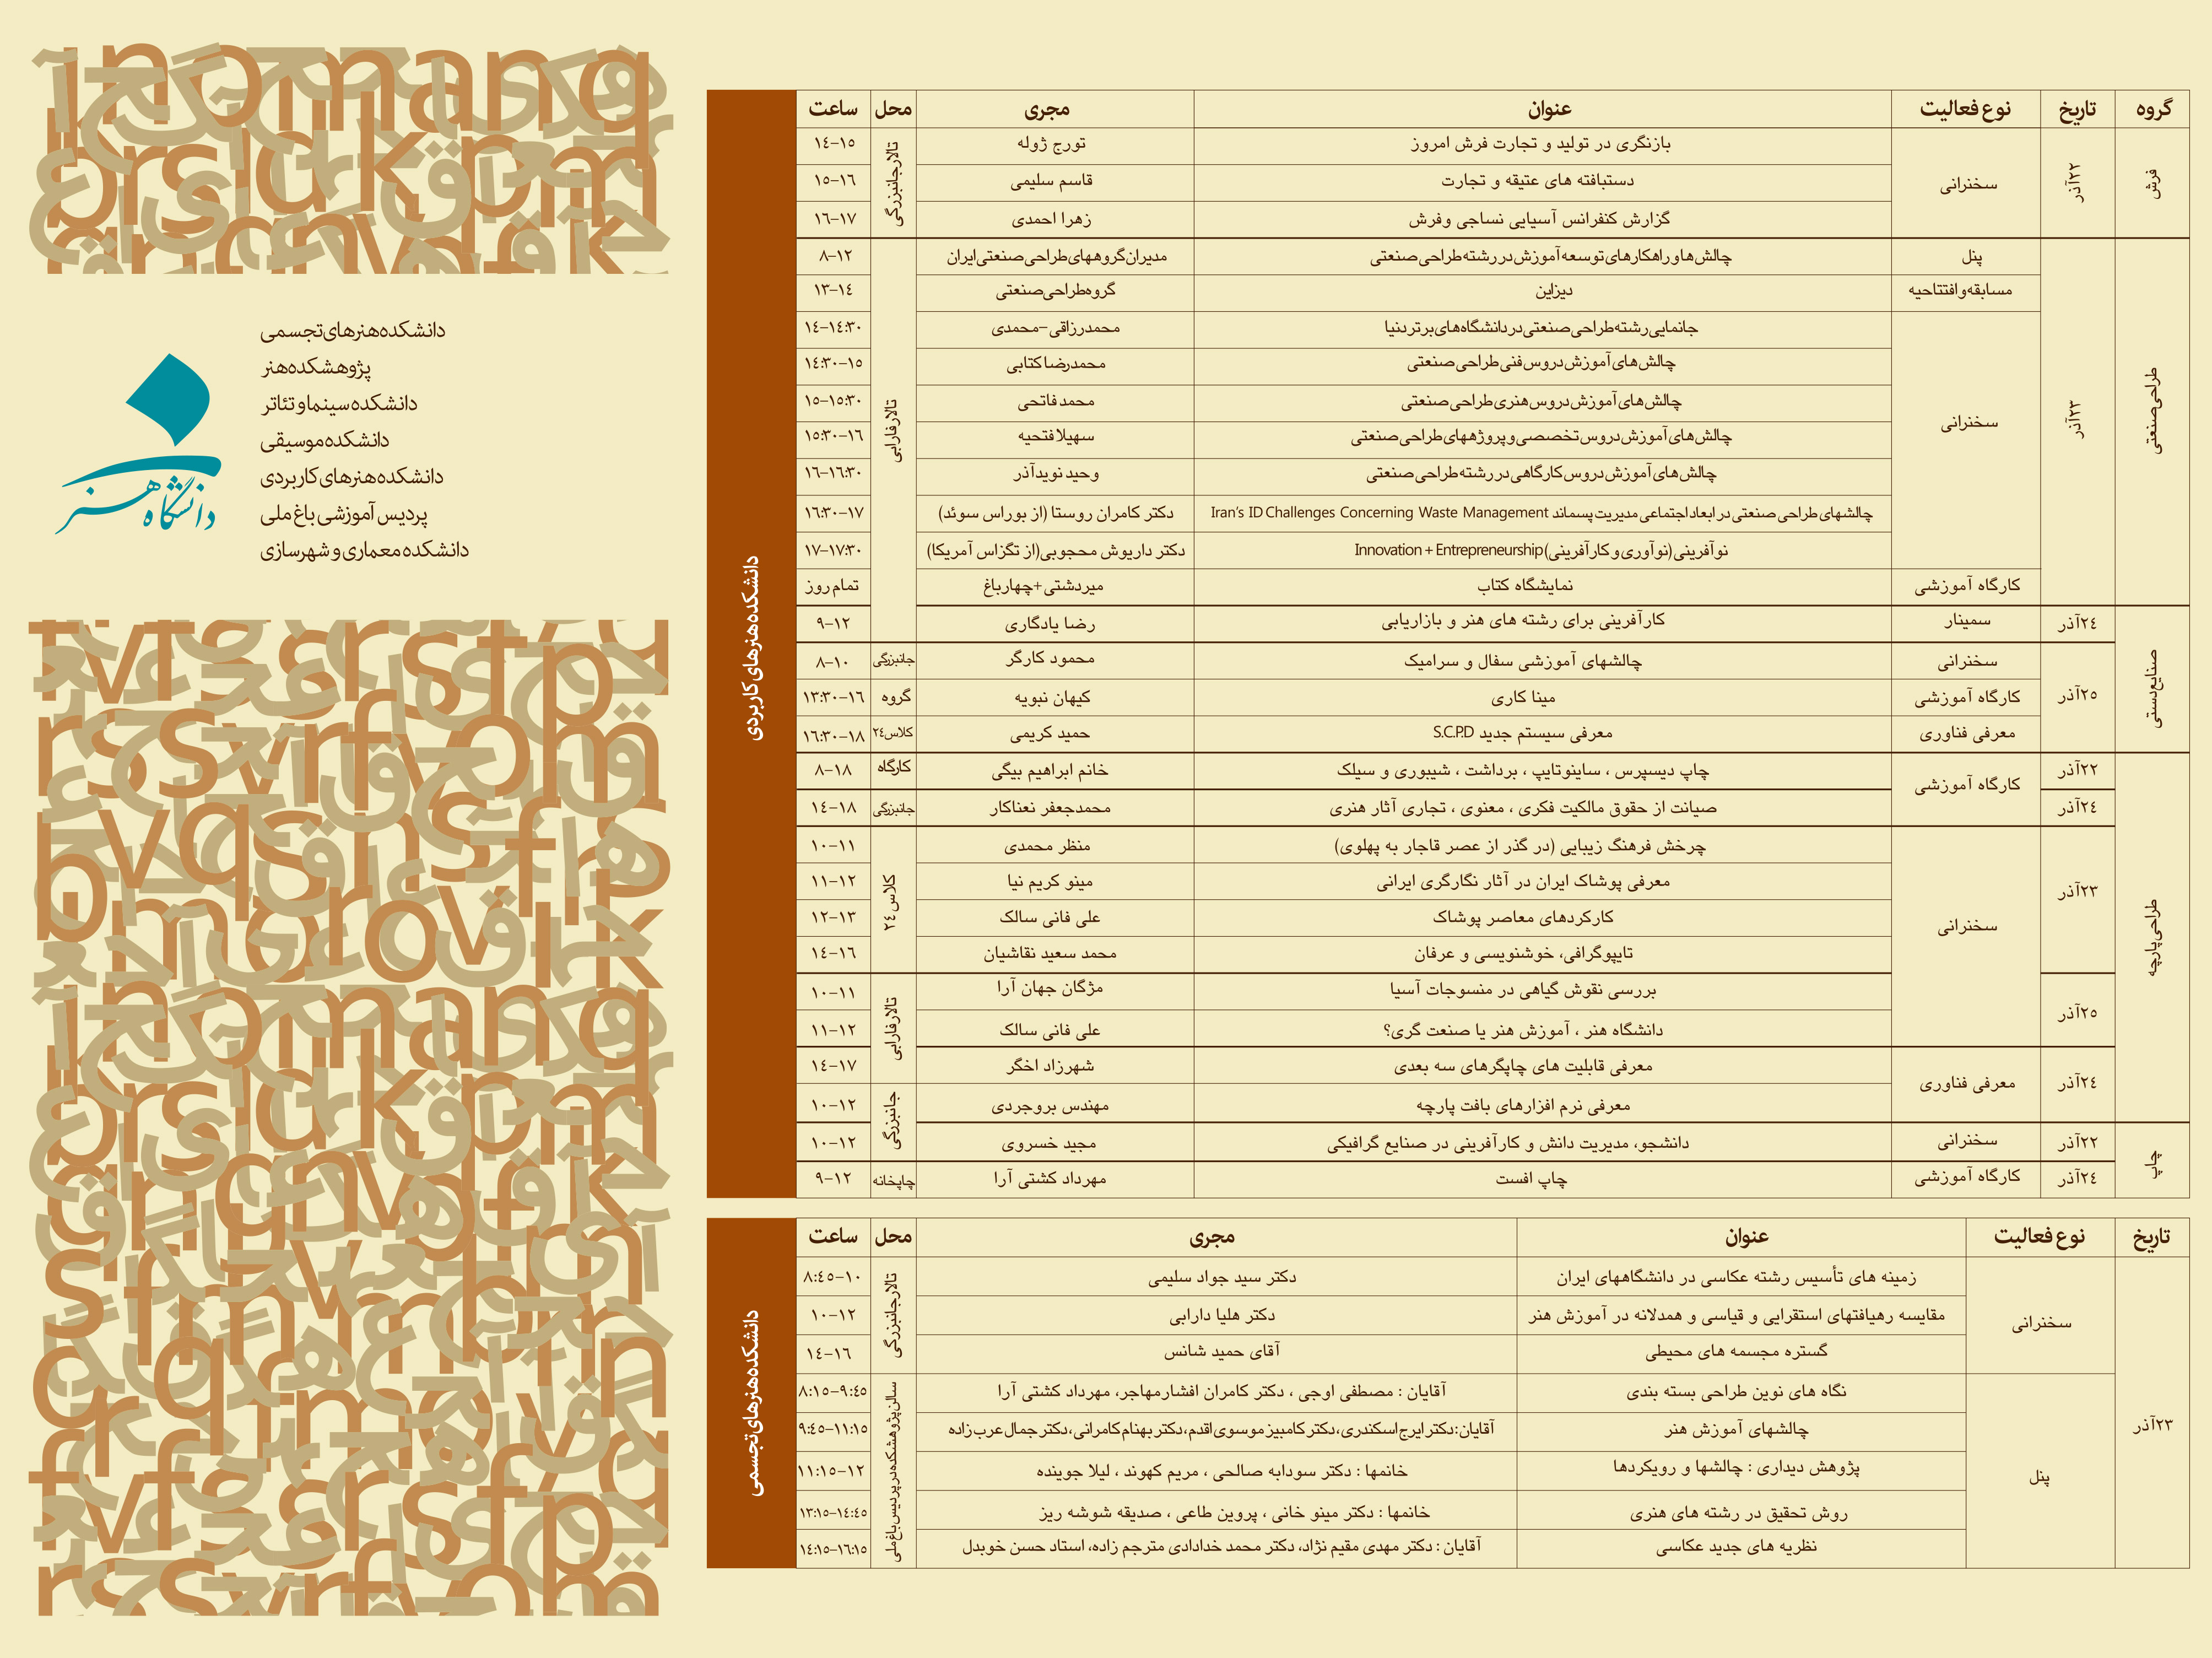 دانشکده هنرهای تجسمی
پژوهشکده هنر
دانشکده سینما و تئاتر
دانشکده موسیقی
دانشکده هنرهای کاربردی
پردیس آموزشی باغ ملی
دانشکده معماری و شهرسازی
دانشگاه هنر
دانشکده هنرهای کاربردی
گروه تاریخ نوع فعالیت عنوان مجری محل ساعت
فرش ۲۲آذر سخنرانی بازنگری در تولید و تجارت فرش امروز تورج ژوله تالار جانبزرگی ۱٤-۱٥
دستبافته های عتیقه و تجارت قاسم سلیمی ۱٥-۱٦
گزارش کنفرانس آسیایی نساجی وفرش زهرا احمدی ۱٦-۱۷
طراحی صنعتی ۲۳آذر پنل چالش ها و راهکارهای توسعه آموزش در رشته طراحی صنعتی مدیران گروههای طراحی صنعتی ایران تالار فارابی ۸-۱۲
مسابقه و افتتاحیه دیزاین گروه طراحی صنعتی ۱۳-۱٤
سخنرانی جانمایی رشته طراحی صنعتی در دانشگاه های برتر دنیا محمدرزاقی-محمدی ۱٤-۱٤:۳۰
چالش های آموزش دروس فنی طراحی صنعتی محمدرضا کتابی ۱٤:۳۰-۱٥
چالش های آموزش دروس هنری طراحی صنعتی محمد فاتحی ۱٥-۱٥:۳۰
چالش های آموزش دروس تخصصی و پروژههای طراحی صنعتی سهیلا فتحیه ۱٥:۳۰-۱٦
چالش های آموزش دروس کارگاهی در رشته طراحی صنعتی وحید نوید آذر ۱٦-۱٦:۳۰
چالشهای طراحی صنعتی در ابعاد اجتماعی مدیریت پسماند Iran's ID Challenges Concerning Waste Management دکتر کامران روستا (از بوراس سوئد) ۱٦:۳۰-۱۷
نوآفرینی (نوآوری و کارآفرینی) Innovation + Entrepreneurship دکتر داریوش محجوبی(از تگزاس آمریکا) ۱۷-۱۷:۳۰
کارگاه آموزشی نمایشگاه کتاب میردشتی+چهارباغ تمام روز
صنایع دستی ۲٤آذر سمینار کارآفرینی برای رشته های هنر و بازاریابی رضا یادگاری ۹-۱۲
۲٥آذر سخنرانی چالشهای آموزشی سفال و سرامیک محمود کارگر جانبزرگی ۸-۱۰
کارگاه آموزشی مینا کاری کیهان نبویه گروه ۱۳:۳۰-۱٦
معرفی فناوری معرفی سیستم جدید S.C.P.D حمید کریمی کلاس۲٤ ۱٦:۳۰-۱۸
طراحی پارچه ۲۲آذر کارگاه آموزشی چاپ دیسپرس ، ساینوتایپ ، برداشت ، شیبوری و سیلک خانم ابراهیم بیگی کارگاه ۸-۱۸
۲٤آذر صیانت از حقوق مالکیت فکری ، معنوی ، تجاری آثار هنری محمدجعفر نعناکار جانبزرگی ۱٤-۱۸
۲۳آذر سخنرانی چرخش فرهنگ زیبایی (در گذر از عصر قاجار به پهلوی) منظر محمدی کلاس ۲٤ ۱۰-۱۱
معرفی پوشاک ایران در آثار نگارگری ایرانی مینو کریم نیا ۱۱-۱۲
کارکردهای معاصر پوشاک علی فانی سالک ۱۲-۱۳
تایپوگرافی، خوشنویسی و عرفان محمد سعید نقاشیان ۱٤-۱٦
۲٥آذر بررسی نقوش گیاهی در منسوجات آسیا مژگان جهان آرا تالار فارابی ۱۰-۱۱
دانشگاه هنر ، آموزش هنر یا صنعت گری؟ علی فانی سالک ۱۱-۱۲
۲٤آذر معرفی فناوری معرفی قابلیت های چاپگرهای سه بعدی شهرزاد اخگر ۱٤-۱۷
معرفی نرم افزارهای بافت پارچه مهندس بروجردی جانبزرگی ۱۰-۱۲
چاپ ۲۲آذر سخنرانی دانشجو، مدیریت دانش و کارآفرینی در صنایع گرافیکی مجید خسروی ۱۰-۱۲
۲٤آذر کارگاه آموزشی چاپ افست مهرداد کشتی آرا چاپخانه ۹-۱۲
دانشکده هنرهای تجسمی
تاریخ نوع فعالیت عنوان مجری محل ساعت
۲۳آذر سخنرانی زمینه های تأسیس رشته عکاسی در دانشگاههای ایران دکتر سید جواد سلیمی تالار جانبزرگی ۸:٤٥-۱۰
مقایسه رهیافتهای استقرایی و قیاسی و همدلانه در آموزش هنر دکتر هلیا دارابی ۱۰-۱۲
گستره مجسمه های محیطی آقای حمید شانس ۱٤-۱٦
پنل نگاه های نوین طراحی بسته بندی آقایان : مصطفی اوجی ، دکتر کامران افشارمهاجر، مهرداد کشتی آرا سالن پژوهشکده در پردیس باغ ملی ۸:۱٥-۹:٤٥
چالشهای آموزش هنر آقایان: دکتر ایرج اسکندری، دکتر کامبیز موسوی اقدم، دکتر بهنام کامرانی، دکتر جمال عرب زاده ۹:٤٥-۱۱:۱٥
پژوهش دیداری : چالشها و رویکردها خانمها : دکتر سودابه صالحی ، مریم کهوند ، لیلا جوینده ۱۱:۱٥-۱۲
روش تحقیق در رشته های هنری خانمها : دکتر مینو خانی ، پروین طاعی ، صدیقه شوشه ریز ۱۳:۱٥-۱٤:٤٥
نظریه های جدید عکاسی آقایان : دکتر مهدی مقیم نژاد، دکتر محمد خدادادی مترجم زاده، استاد حسن خوبدل ۱٤:۱٥-۱٦:۱٥